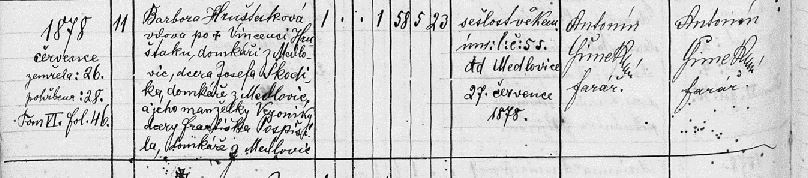 1878
července
zemřela: 26.
pohřbena: 28.
Tom VI. fol. 46.
11
Barbora Hrušťáková
vdova po † Vincenci Hru
šťáku, domkáři z Medlo
vic, dcera Josefa Škodí
ka, domkáře z Medlovic,
a jeho manželky Veroniky
dcery Františka Pospíši
la, domkáře z Medlovic
1 . . 1 58 5 23
sešlost věkem
úm: l: č: 55.
Ad Medlovice
27. července
1878.
Antonín
Šimek
farář.
Antonín
Šimek
farář.